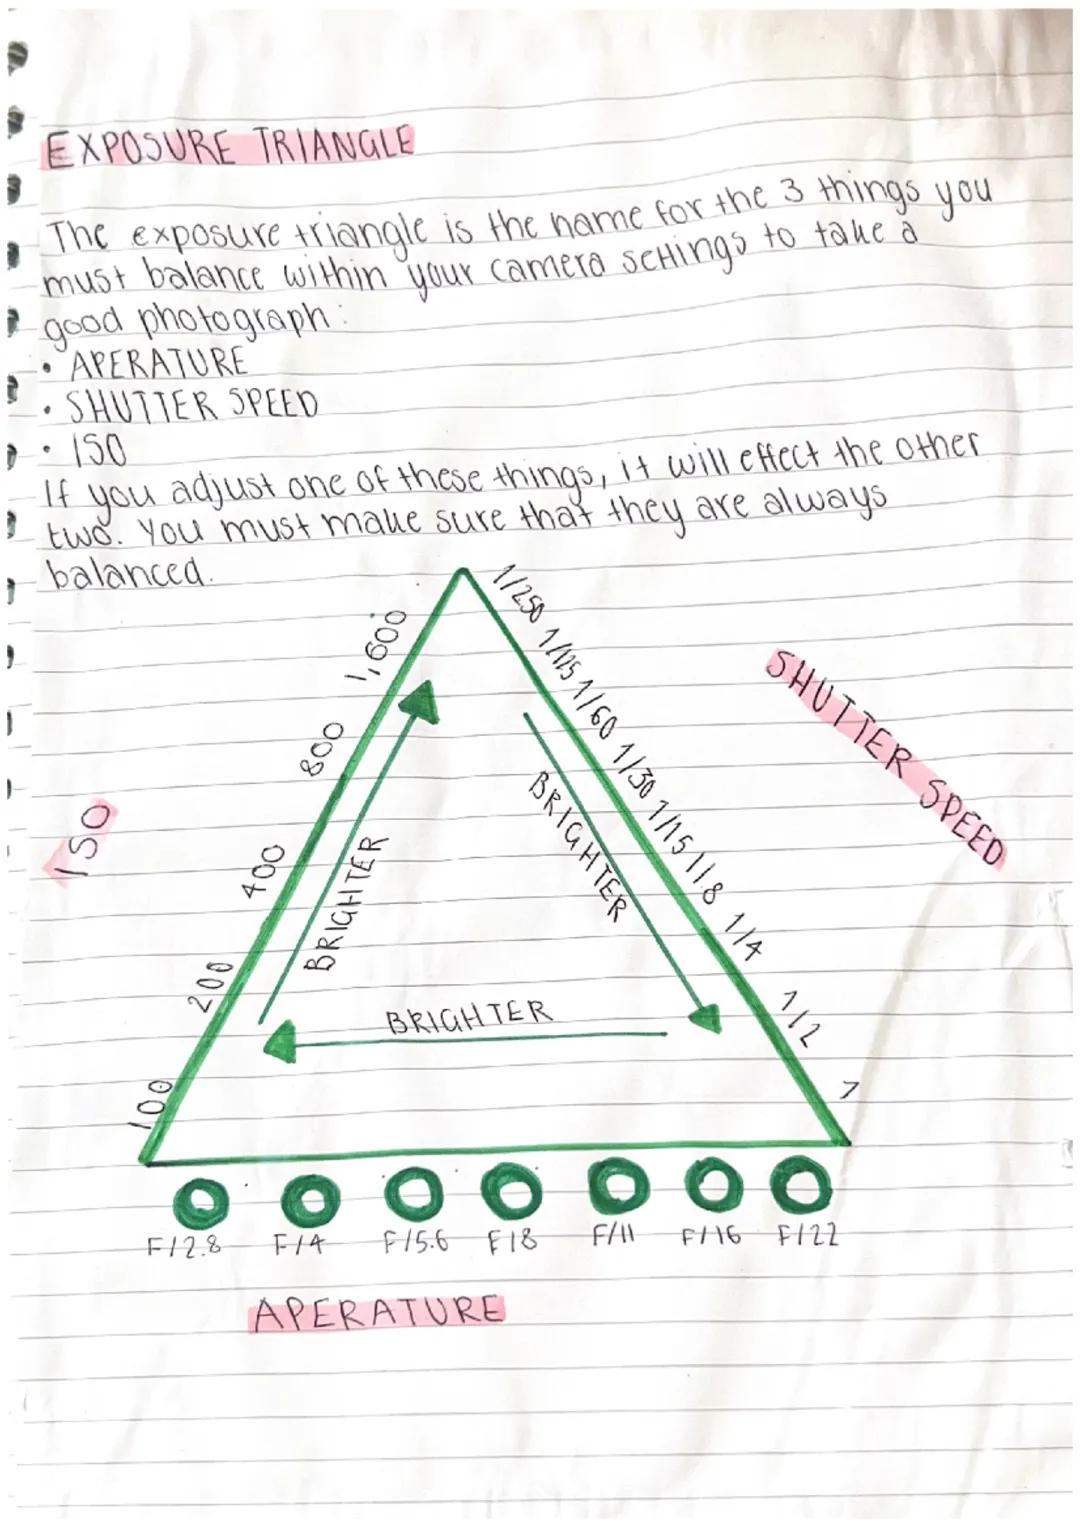 EXPOSURE TRIANGLE
The exposure triangle is the name for the 3 things you
must balance within your camera settings to take a
good photograph:
• APERATURE
• SHUTTER SPEED
• ISO
If you adjust one of these things, it will effect the other
two. You must make sure that they are always
balanced.
1/250 1/125 1/60 1/30 1/15 1/8 1/4 1/2 1
SHUTTER SPEED
1,600
800
400
200
100
ISO
BRIGHTER
BRIGHTER
BRIGHTER
F/2.8 F/4 F/5.6 F/8 F/11 F/16 F/22
APERATURE